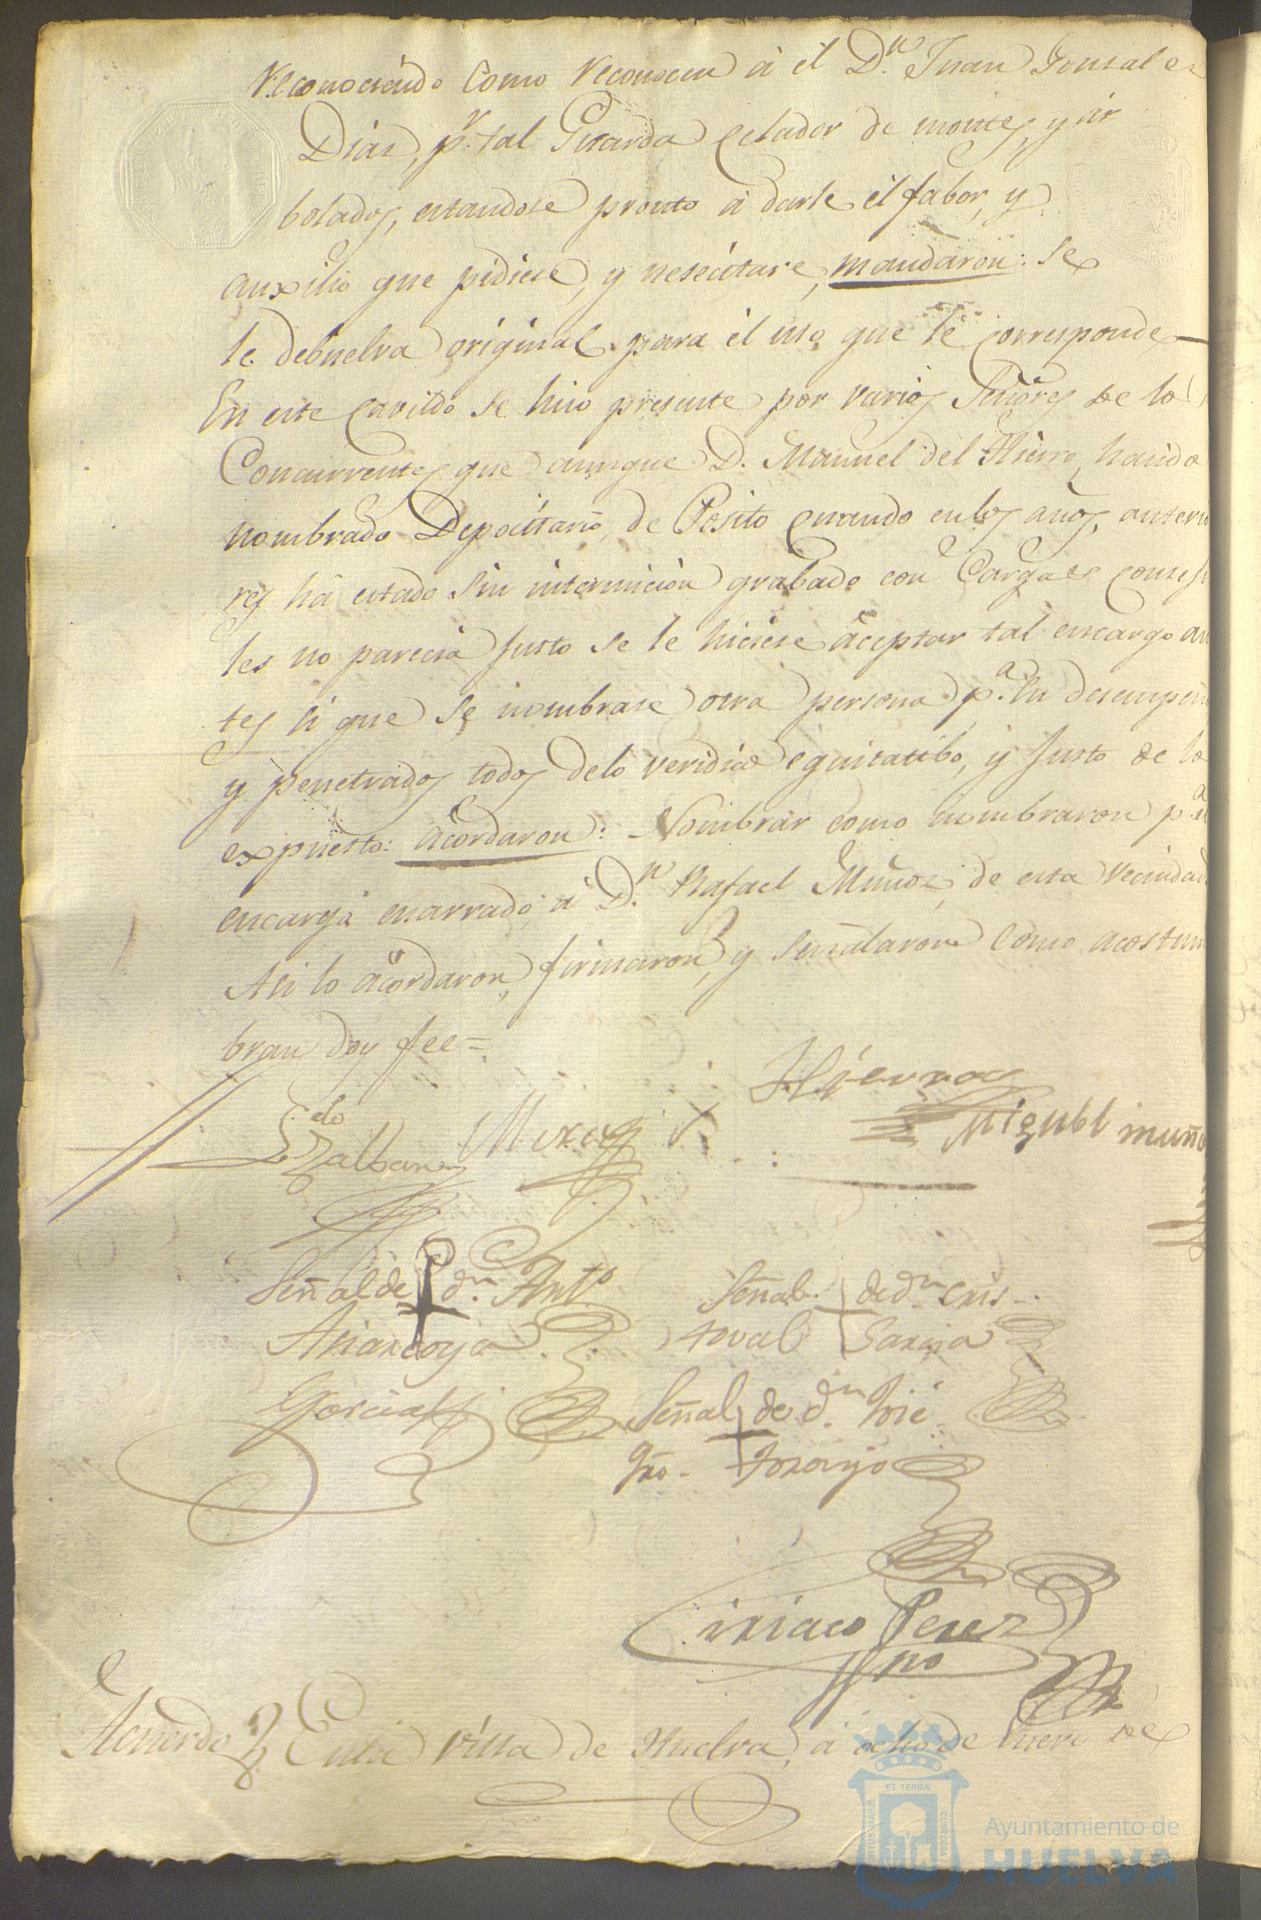 Reconociendo como reconocen á él Dn. Juan Gonzalez
Dias, pr. tal Guarda celador de montes, y ár
bolados, estandose pronto á darle él fabor, y
auxilio que pidiese, y nesecitare, mandaron: se
le debuelva original para él uso que le corresponde
En este Cavildo se hizo presente por varios Señores de lo
Concurrentes que aunque D. Manuel del Hierro, haido
nombrado Depocitario, de Posito quando en los años, anterio
res há estado sin intermicion grabado con Cargas conseji
les no parecia justo se le hiciese aceptar tal encargo an
tes si que se nombrase otra persona pa. su desempeño
y penetrados todos delo veridico equitatibo, y justo de lo
expuesto: acordaron: Nombrar como nombraron pa. el
encargo enarrado, á Dn. Rafael Muñoz, de esta vecindad
Asi lo acordaron, firmaron, y señalaron como acostum
bran doy fee=
Hierro
Miguel muño
Señal de dn. Anto
Señal de dn. Cris
toval Garcia
Garcia
Señal de dn. José
Ciriaco Perez
Acuerdo En la villa de Huelva, á ocho de Enero de
ET TERRÆ
CUSTODIA
PORTUS MARIS
Ayuntamiento de
HUELVA